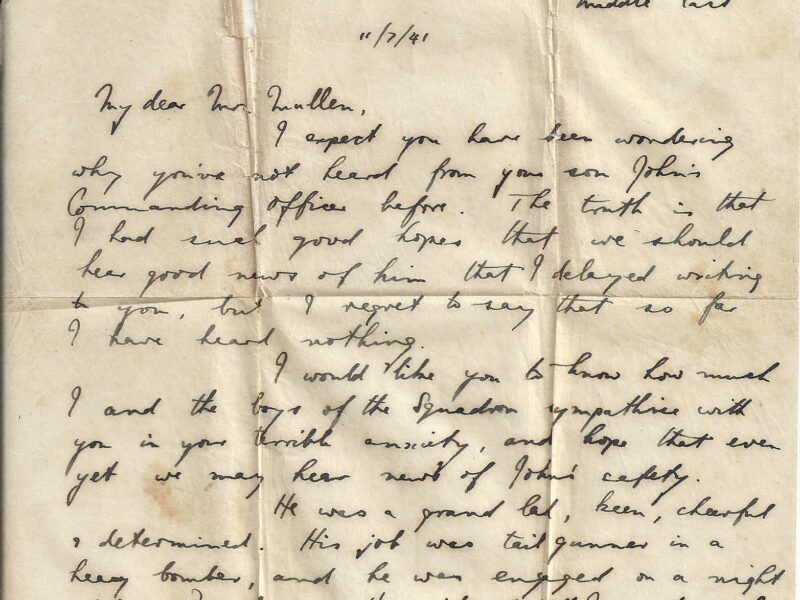 Middle East
11/7/41
My dear Mr. Mullen,
I expect you have been wondering
why you've not heard from your son John's
Commanding Officer before. The truth is that
I had such good hopes that we should
hear good news of him that I delayed writing
to you, but I regret to say that so far
I have heard nothing.
I would like you to know how much
I and the boys of the Squadron sympathise with
you in your terrible anxiety, and hope that even
yet we may hear news of John's safety.
He was a grand lad, keen, cheerful
& determined. His job was tail gunner in a
heavy bomber, and he was engaged on a night